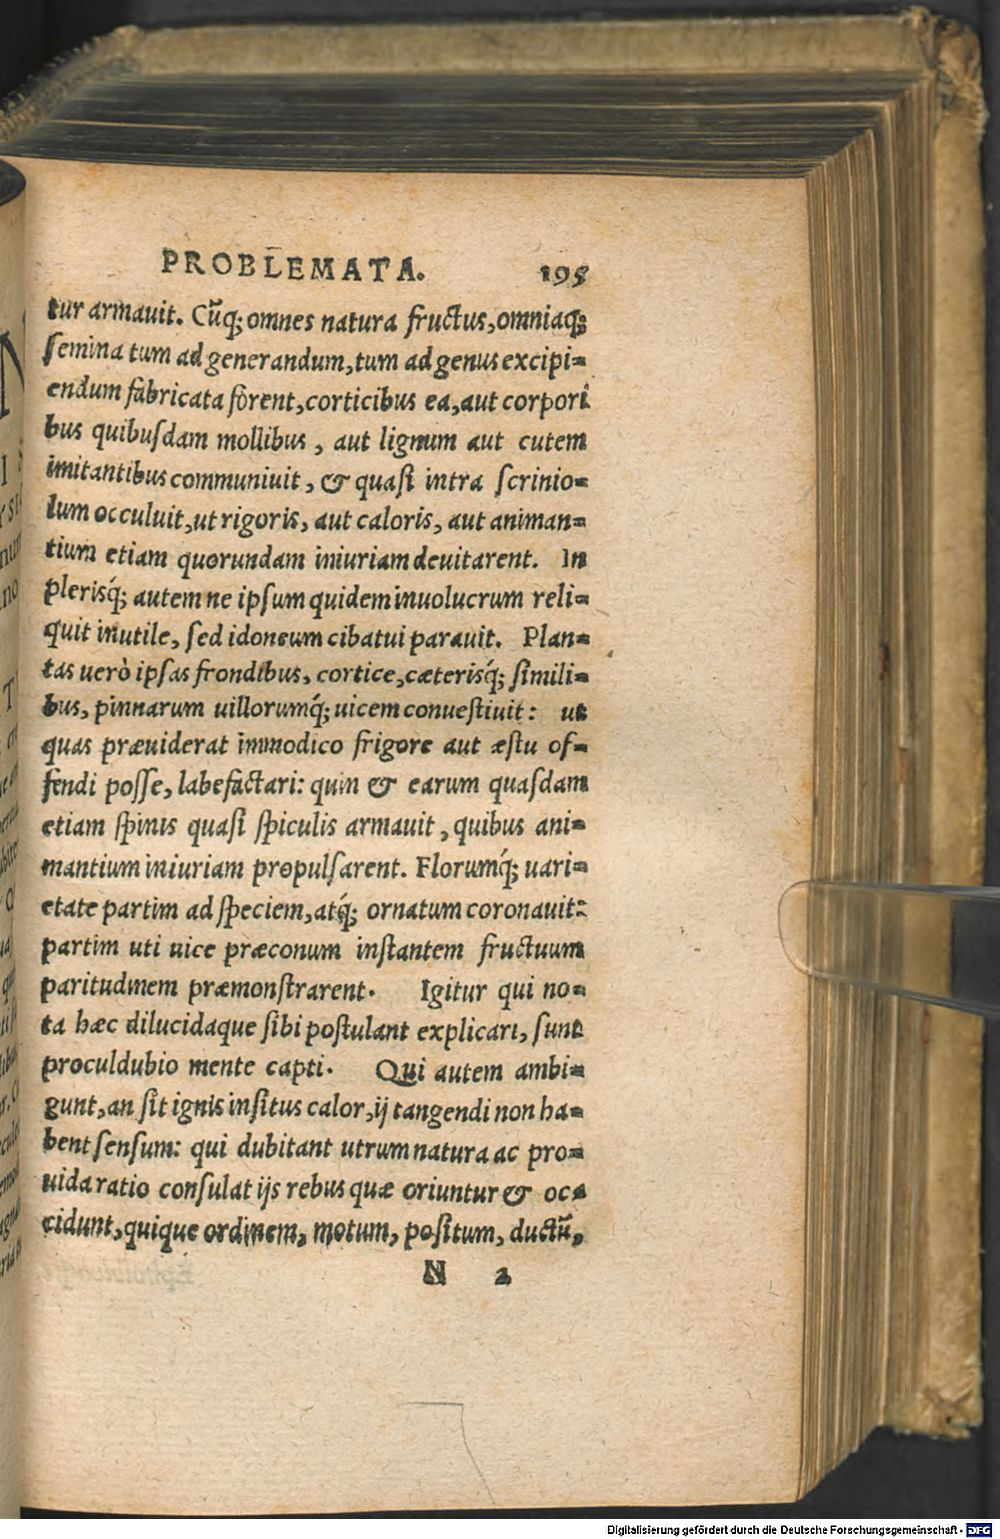 PROBLEMATA. 195
tur armauit. Cũq; omnes natura fructus, omniaq;
ſemina tum ad generandum, tum ad genus excipi=
endum fabricata fòrent, corticibus ea, aut corpori
bus quibuſdam mollibus, aut lignum aut cutem
imitantibus communiuit, & quaſi intra ſcrinio=
lum occuluit, ut rigoris, aut caloris, aut animan=
tium etiam quorundam iniuriam deuitarent. In
plerisq́; autem ne ipſum quidem inuolucrum reli=
quit inutile, ſed idoneum cibatui parauit. Plan=
tas uerò ipſas frondibus, cortice, cæterisq́; ſimili=
bus, pinnarum uillorumq́; uicem conueſtiuit: ut
quas præuiderat immodico frigore aut æſtu of=
fendi poſſe, labefactari: quin & earum quaſdam
etiam ſpinis quaſi ſpiculis armauit, quibus ani=
mantium iniuriam propulſarent. Florumq́; uari=
etate partim ad ſpeciem, atq́; ornatum coronauit:
partim uti uice præconum inſtantem fructuum
paritudinem præmonſtrarent. Igitur qui no=
ta hæc dilucidaque ſibi poſtulant explicari, ſunt
proculdubio mente capti. Qui autem ambi=
gunt, an ſit ignis inſitus calor, ij tangendi non ha=
bent ſenſum: qui dubitant utrum natura ac pro=
uida ratio conſulat ijs rebus quæ oriuntur & oc=
cidunt, quique ordinem, motum, poſitum, ductũ,
N 2
Digitalisierung gefördert durch die Deutsche Forschungsgemeinschaft - DFG